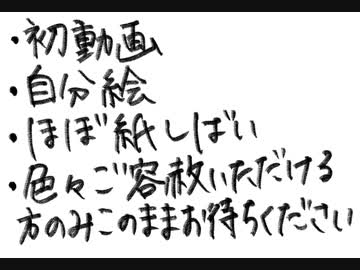 ・初動画
・自分絵
・ほぼ紙しばい
・色々ご容赦いただける
方のみこのままお待ちください